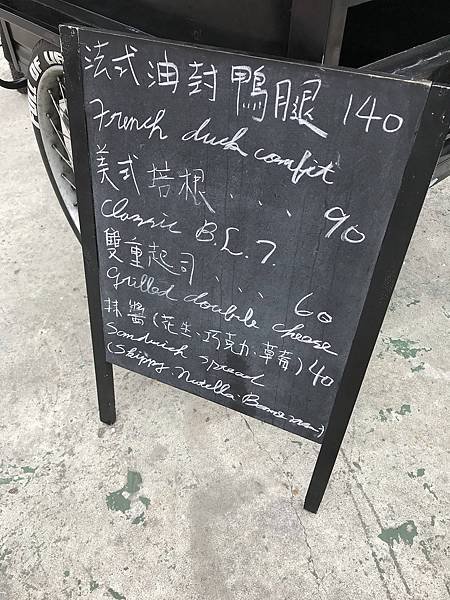 FULL OF
法式油封鴨腿 140
French duck comfit
美式培根... 90
Classic B.L.T.
雙重起司... 60
Grilled double cheese
抹醬(花生.巧克力.草莓)40
Sandwich spread
(Skippy. Nutella. Bonne